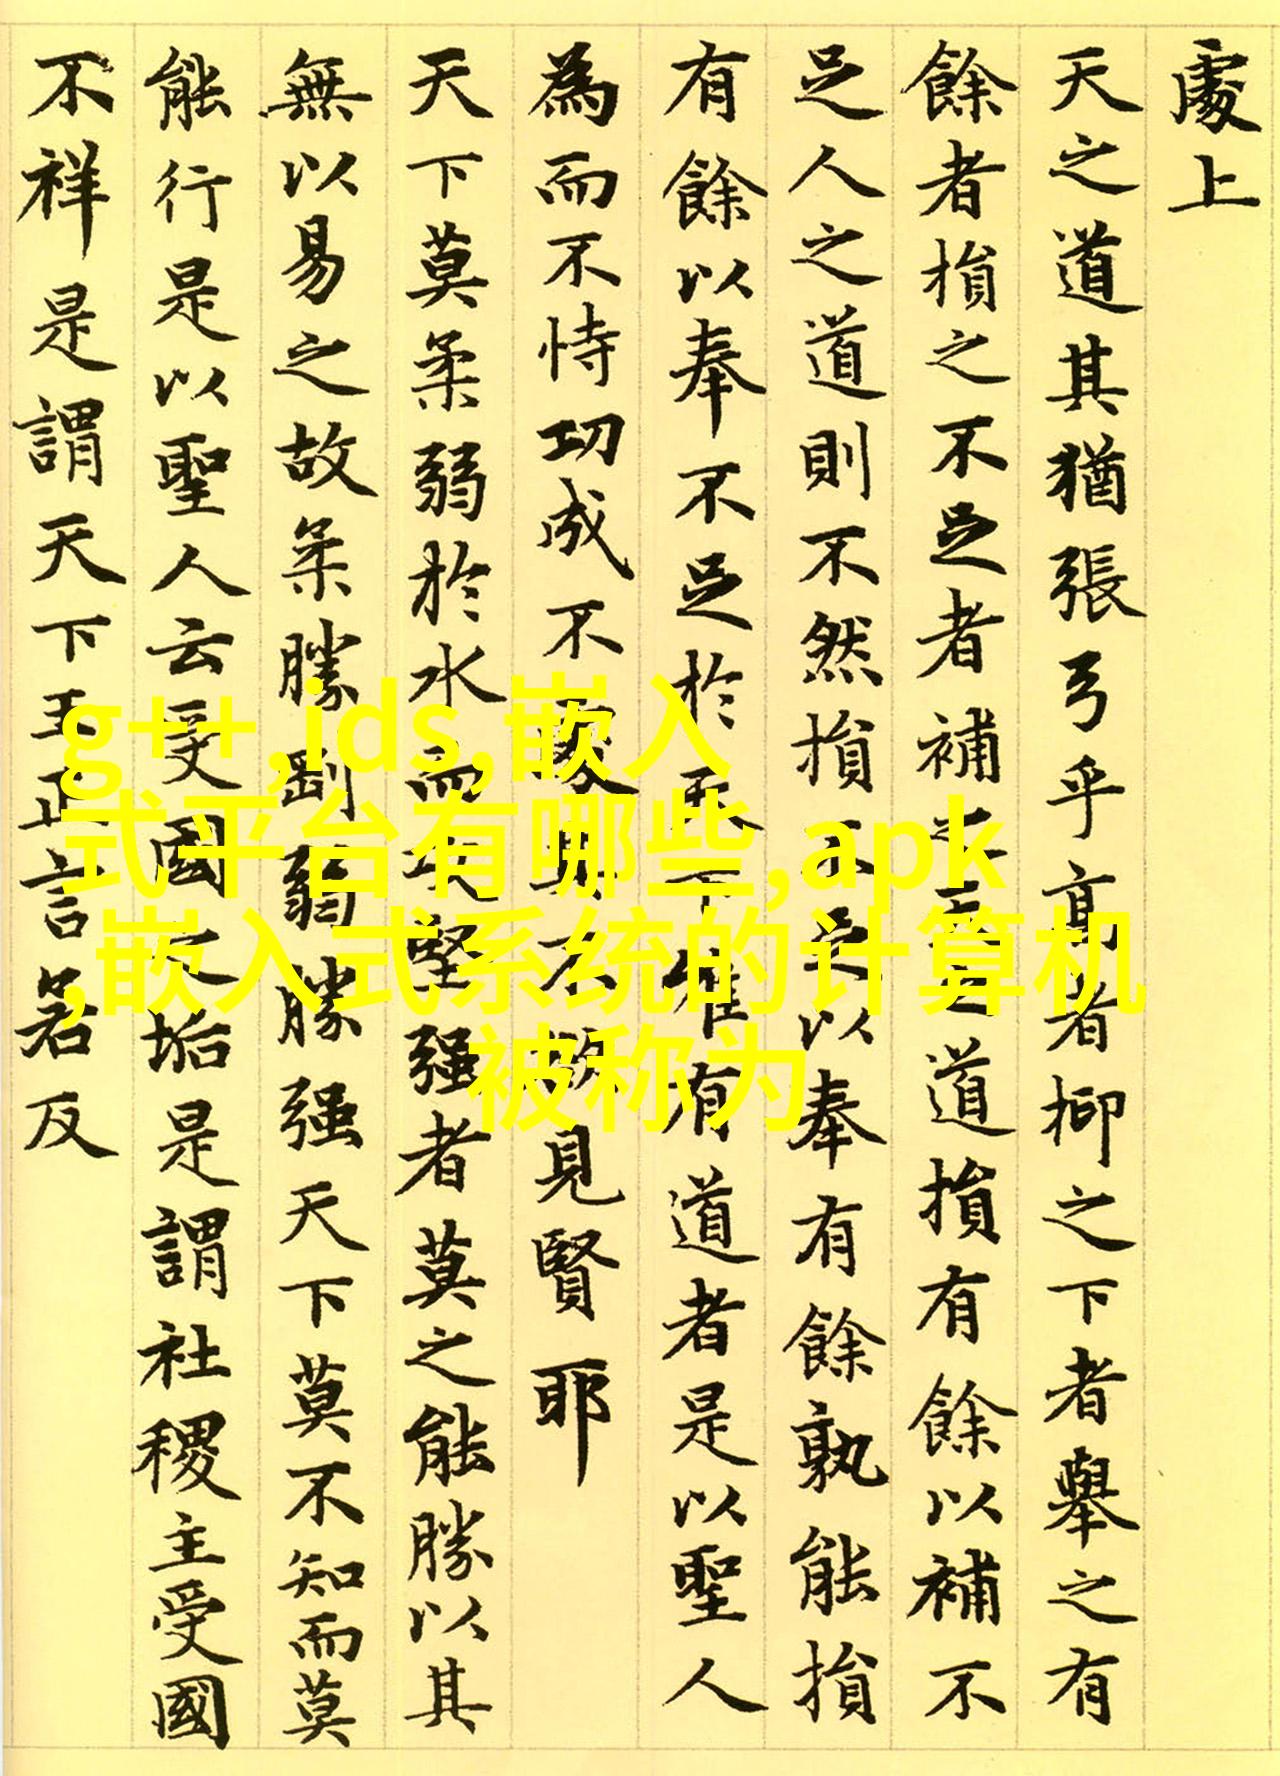 處上
天之道其猶張弓乎高者抑之下者舉之有
餘者損之不足者補之天之道損有餘以補不
足人之道則不然損不足以奉有餘孰能損
有餘以奉不足於天下唯有道者是以聖人
為而不恃功成不處其不欲見賢耶
天下莫柔弱於水而攻堅强者莫之能勝以其
無以易之故柔勝剛弱勝强天下莫不知而莫
能行是以聖人云受國之垢是謂社稷主受國
不祥是謂天下王正言若反
g++,ids,嵌入
式平台有哪些,apk
,嵌入式系统的计算机
被称为